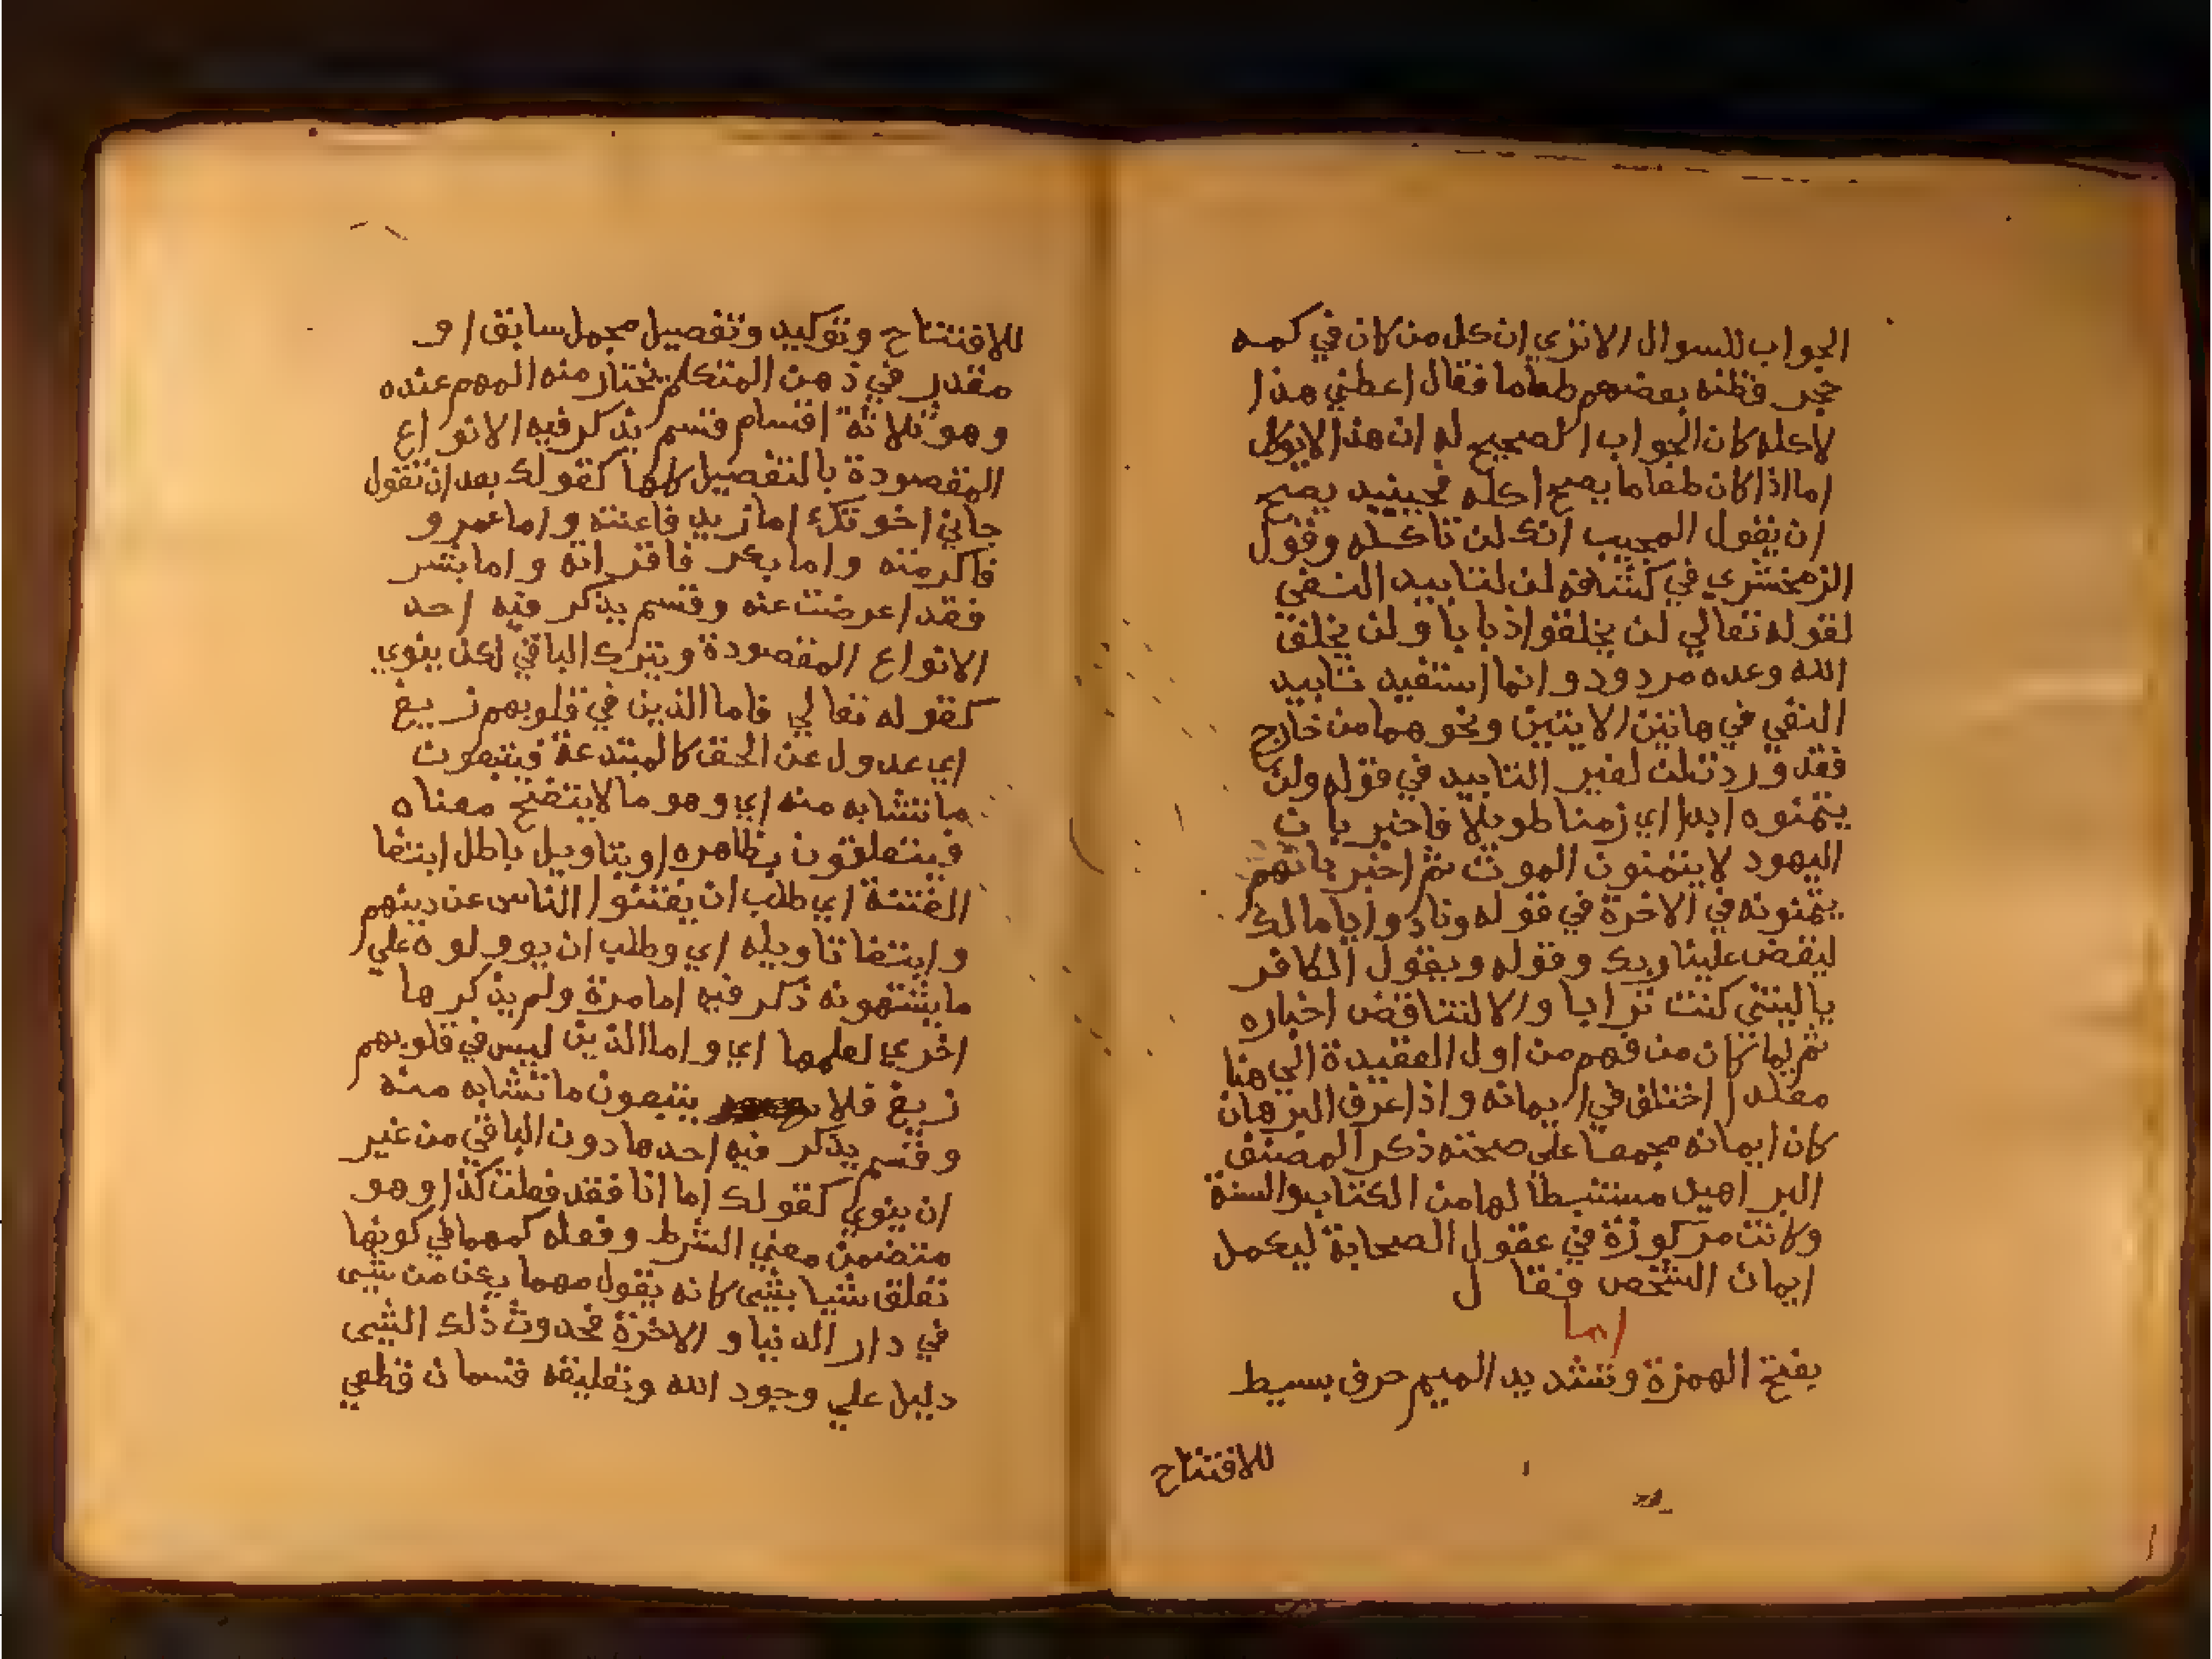 الجواب للسوال الا تري ان كل من كان في كمه
حجر فظنه بعضهم طعاما فقال اعطني هذا
لاكله كان الجواب الصحيح له ان هذا لا يوكل
اما اذا كان طعاما يصح اكله فحينيد يصح
ان يقول المجيب انك لن تاكله وقول
الزمخشري في كشافه لن لتابيد النفي
لقوله تعالي لن يخلقوا ذبابا ولن يخلق
الله وعده مردود وانما استفيد تابيد
النفي في هاتين الايتين ونحوهما من خارج
فقد وردت لن لغير التابيد في قوله ولن
يتمنوه ابدا اي زمنا طويلا فاخبر بان
اليهود لا يتمنون الموت ثم اخبر بانهم
يتمنونه في الاخرة في قوله ونادوا يا مالك
ليقض علينا ربك وقوله ويقول الكافر
يا ليتني كنت ترابا والا لتناقض اخباره
ثم لما كان من فهم من اول العقيدة الي هنا
مقلدا اختلف في ايمانه واذا عرف البرهان
كان ايمانه مجمعا علي صحته ذكر المصنف
البراهين مستنبطا لها من الكتاب والسنة
وكانت مركوزة في عقول الصحابة ليكمل
ايمان الشخص فقال
اما
بفتح الهمزة وتشديد الميم حرف بسيط
للافتتاح
للافتتاح وتوكيد وتفصيل مجمل سابق او
مقدر في ذهن المتكلم يختار منه المهم عنده
وهو ثلاثة اقسام قسم يذكر فيه الانواع
المقصودة بالتفصيل كلها كقولك بعد ان تقول
جاني اخوتك اما زيد فاعنته واما عمرو
فاكرمته واما بكر فاقراته واما بشر
فقد اعرضت عنه وقسم يذكر فيه احد
الانواع المقصودة ويترك الباقي لكن ينوي
كقوله تعالي فاما الذين في قلوبهم زيغ
اي عدول عن الحق كالمبتدعة فيتبعون
ما تشابه منه اي وهو ما لا يتضح معناه
فيتعلقون بظاهره او بتاويل باطل ابتغا
الفتنة اي طلب ان يفتنوا الناس عن دينهم
وابتغا تاويله اي وطلب ان يوولوه علي
ما يشتهونه ذكر فيه اما مرة ولم يذكرها
اخري لعلمها اي واما الذين ليس في قلوبهم
زيغ فلا يتبعون ما تشابه منه
وقسم يذكر فيه احدها دون الباقي من غير
ان ينوي كقولك اما انا فقد فعلت كذا وهو
متضمن معني الشرط وفعله كمهما في كونها
تعلق شيا بشيى كانه يقول مهما يكن من شيى
في دار الدنيا والاخرة فحدوث ذلك الشيى
دليل علي وجود الله وتعليقه قسمان قطعي